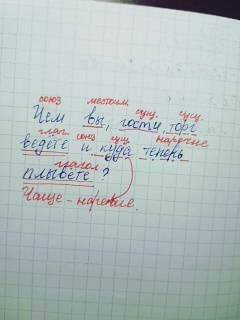 союз местоим. сущ. сущ.
Чем вы, гости, торг
глаг. союз сущ наречие
ведёте и куда теперь
глагол
плывёте?
Чаще - наречие